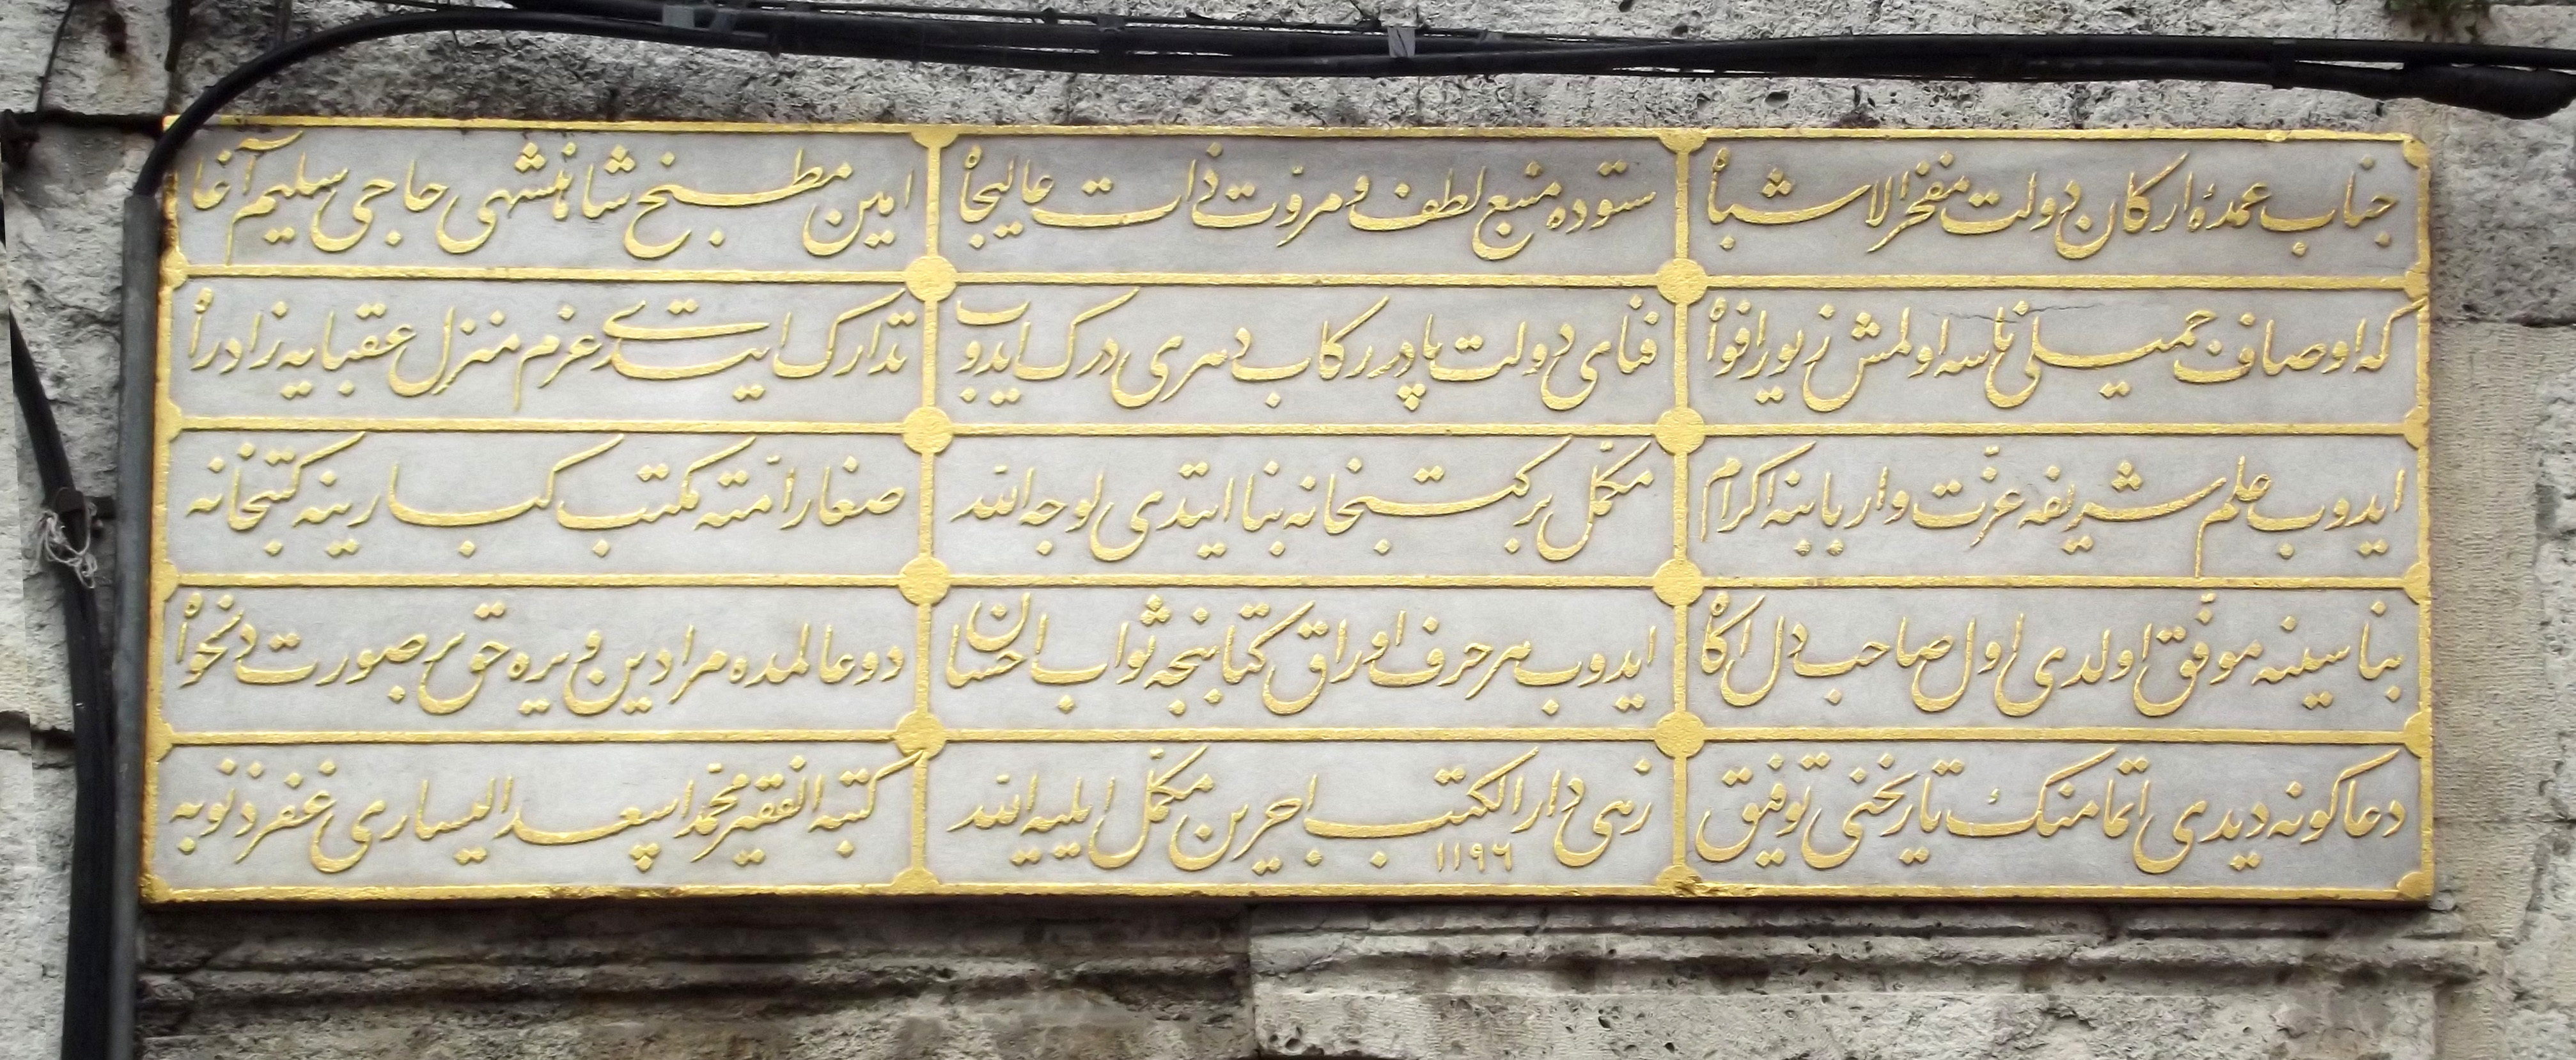 جناب عمدهٔ اركان دولت مفخر الاشباه
ستوده منبع لطف و مروّت ذات عاليجاه
امين مطبخ شاهنشهى حاجى سليم آغا
كه اوصاف جميلى ناسه اولمش زيور افواه
فناى دولت پا در ركاب دهرى درك ايدوب
تدارك ايتدى عزم منزل عقبايه زاد راه
ايدوب علم شريفه عزت واربابنه اكرام
مكمّل بر كتبخانه بنا ايتدى لوجه الله
صغار امّته مكتب كبارينه كتبخانه
بناسينه موفّق اولدى اول صاحب دل اكاه
ايدوب هر حرف اوراق كتابنجه ثواب احسان
دو عالمده مرادين ويره حق بر صورت دلخواه
دعاكونه ديدى اتمامنك تاريخنى توفيق
زهى دار الكتب اجرين مكمّل ايليه الله
١١٩٦
كتبه الفقير محمّد اسعد اليسارى غفر ذنوبه